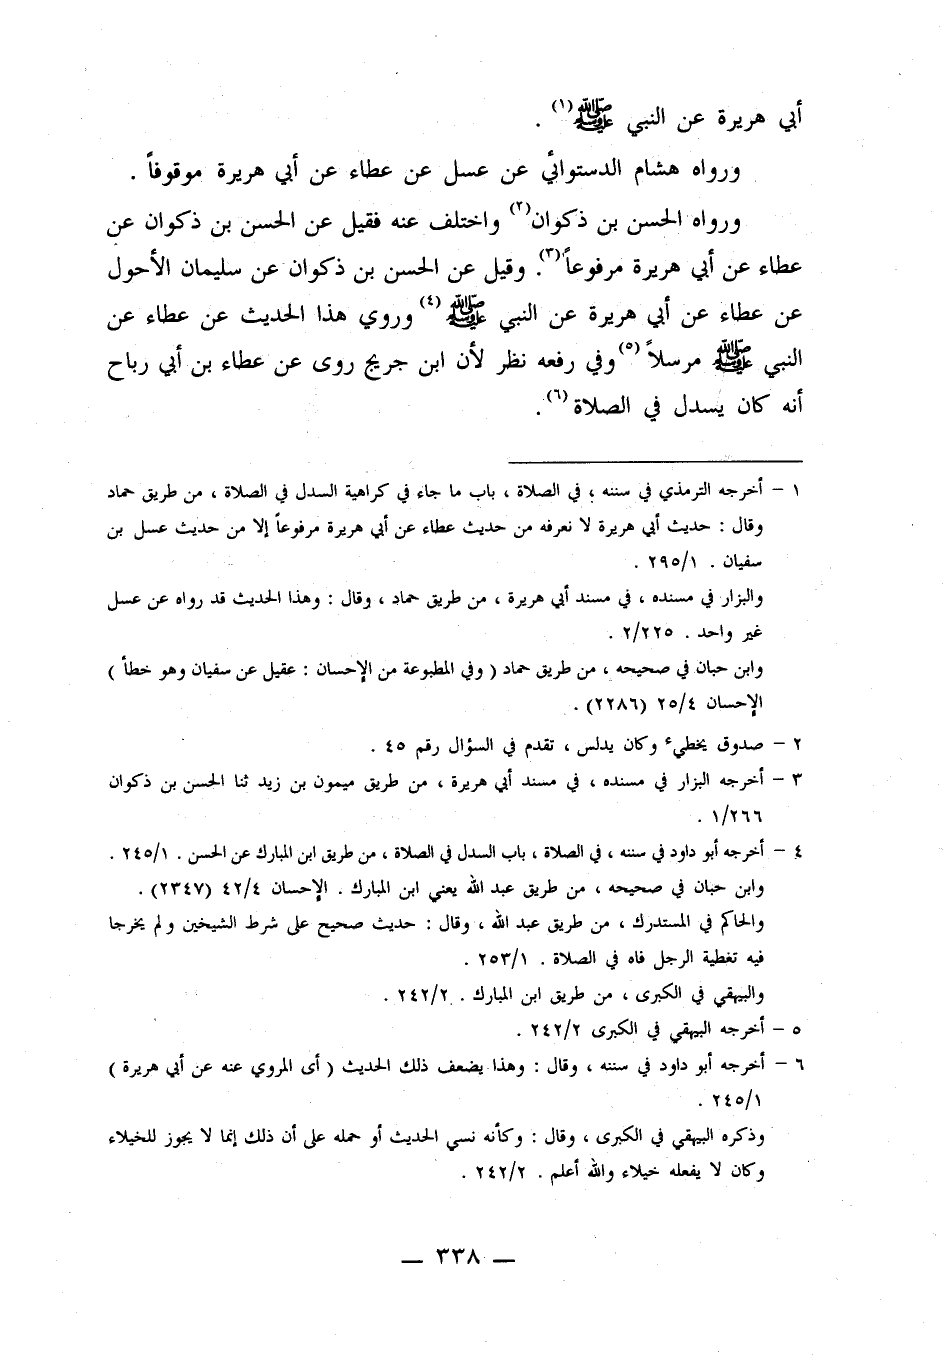 أبي هريرة عن النبي ﷺ(١) .
ورواه هشام الدستوائي عن عسل عن عطاء عن أبي هريرة موقوفاً .
ورواه الحسن بن ذكوان(٢) واختلف عنه فقيل عن الحسن بن ذكوان عن
عطاء عن أبي هريرة مرفوعاً(٣). وقيل عن الحسن بن ذكوان عن سليمان الأحول
عن عطاء عن أبي هريرة عن النبي ﷺ(٤) وروي هذا الحديث عن عطاء عن
النبي ﷺ مرسلاً(٥) وفي رفعه نظر لأن ابن جريج روى عن عطاء بن أبي رباح
أنه كان يسدل في الصلاة(٦).
١ - أخرجه الترمذي في سننه ، في الصلاة ، باب ما جاء في كراهية السدل في الصلاة ، من طريق حماد
وقال : حديث أبي هريرة لا نعرفه من حديث عطاء عن أبي هريرة مرفوعاً إلا من حديث عسل بن
سفيان . ٢٩٥/١ .
والبزار في مسنده ، في مسند أبي هريرة ، من طريق حماد ، وقال : وهذا الحديث قد رواه عن عسل
غير واحد . ٢/٢٢٥ .
وابن حبان في صحيحه ، من طريق حماد ( وفي المطبوعة من الإحسان : عقيل عن سفيان وهو خطأ )
الإحسان ٢٥/٤ (٢٢٨٦) .
٢ - صدوق يخطيء وكان يدلس ، تقدم في السؤال رقم ٤٥ .
٣ - أخرجه البزار في مسنده ، في مسند أبي هريرة ، من طريق ميمون بن زيد ثنا الحسن بن ذكوان
١/٢٦٦ .
٤ - أخرجه أبو داود في سننه ، في الصلاة ، باب السدل في الصلاة ، من طريق ابن المبارك عن الحسن . ٢٤٥/١ .
وابن حبان في صحيحه ، من طريق عبد الله يعني ابن المبارك . الإحسان ٤٢/٤ (٢٣٤٧) .
والحاكم في المستدرك ، من طريق عبد الله ، وقال : حديث صحيح على شرط الشيخين ولم يخرجا
فيه تغطية الرجل فاه في الصلاة . ٢٥٣/١ .
والبيهقي في الكبرى ، من طريق ابن المبارك . ٢٤٢/٢ .
٥ - أخرجه البيهقي في الكبرى ٢٤٢/٢ .
٦ - أخرجه أبو داود في سننه ، وقال : وهذا يضعف ذلك الحديث ( أى المروي عنه عن أبي هريرة )
٢٤٥/١ .
وذكره البيهقي في الكبرى ، وقال : وكأنه نسي الحديث أو حمله على أن ذلك إنما لا يجوز للخيلاء
وكان لا يفعله خيلاء والله أعلم . ٢٤٢/٢ .
— ٣٣٨ —